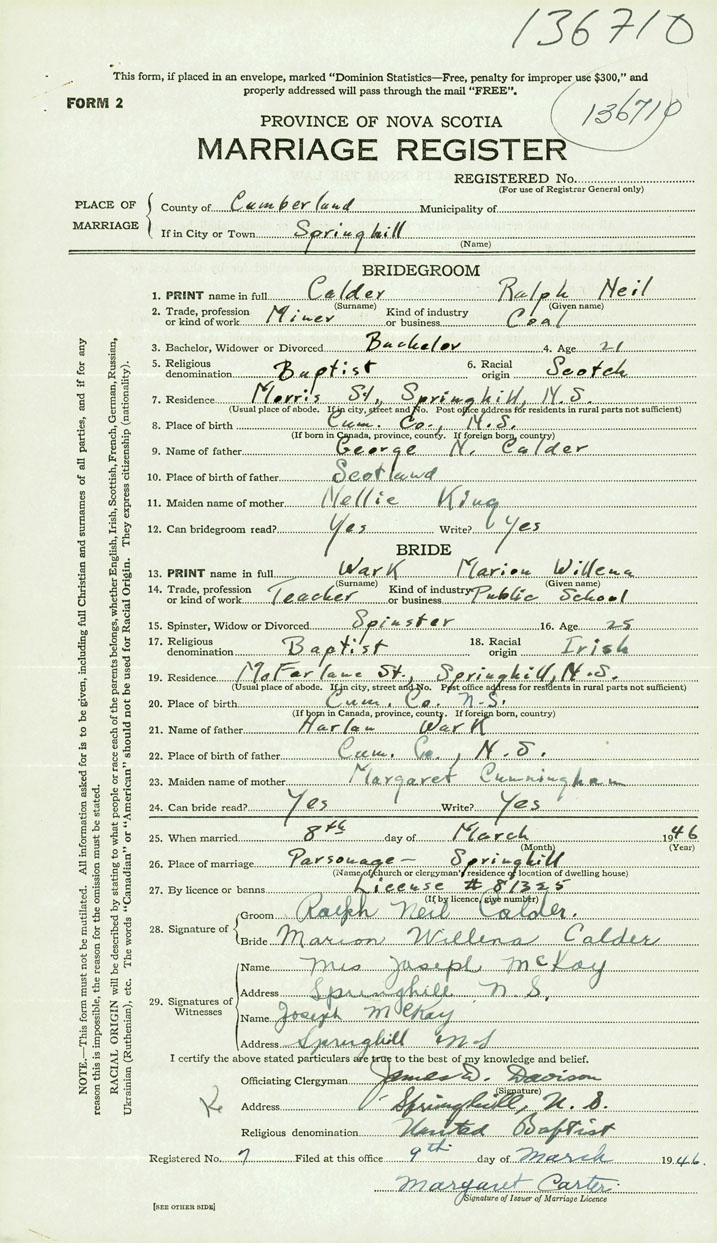 136710
This form, if placed in an envelope, marked "Dominion Statistics—Free, penalty for improper use $300," and
properly addressed will pass through the mail "FREE".
FORM 2
136710
PROVINCE OF NOVA SCOTIA
MARRIAGE REGISTER
REGISTERED No.
(For use of Registrar General only)
PLACE OF MARRIAGE
County of Cumberland Municipality of
If in City or Town Springhill
(Name)
BRIDEGROOM
1. PRINT name in full Calder Ralph Neil
(Surname) (Given name)
2. Trade, profession or kind of work Miner Kind of industry or business Coal
3. Bachelor, Widower or Divorced Bachelor 4. Age 21
5. Religious denomination Baptist 6. Racial origin Scotch
7. Residence Morris St., Springhill, N.S.
(Usual place of abode. If in city, street and No. Post office address for residents in rural parts not sufficient)
8. Place of birth Cum. Co., N.S.
(If born in Canada, province, county. If foreign born, country)
9. Name of father George N. Calder
10. Place of birth of father Scotland
11. Maiden name of mother Nellie King
12. Can bridegroom read? Yes Write? Yes
BRIDE
13. PRINT name in full Wark Marion Willena
(Surname) (Given name)
14. Trade, profession or kind of work Teacher Kind of industry or business Public School
15. Spinster, Widow or Divorced Spinster 16. Age 25
17. Religious denomination Baptist 18. Racial origin Irish
19. Residence McFarlane St., Springhill, N.S.
(Usual place of abode. If in city, street and No. Post office address for residents in rural parts not sufficient)
20. Place of birth Cum. Co. N.S.
(If born in Canada, province, county. If foreign born, country)
21. Name of father Harlan Wark
22. Place of birth of father Cum. Co., N.S.
23. Maiden name of mother Margaret Cunningham
24. Can bride read? Yes Write? Yes
25. When married 8th day of March 1946
(Month) (Year)
26. Place of marriage Parsonage — Springhill
(Name of church or clergyman's residence or location of dwelling house)
27. By licence or banns License # 81325
(If by licence, give number)
28. Signature of
Groom Ralph Neil Calder.
Bride Marion Willena Calder
29. Signatures of Witnesses
Name Mrs Joseph McKay
Address Springhill N.S.
Name Joseph McKay
Address Springhill N S
I certify the above stated particulars are true to the best of my knowledge and belief.
Officiating Clergyman James D. Davison
(Signature)
Address Springhill, N.S.
Religious denomination United Baptist
Registered No. 7 Filed at this office 9th day of March 1946.
Margaret Carter
Signature of Issuer of Marriage Licence
[SEE OTHER SIDE]
NOTE.—This form must not be mutilated. All information asked for is to be given, including full Christian and surnames of all parties, and if for any
reason this is impossible, the reason for the omission must be stated.
RACIAL ORIGIN will be described by stating to what people or race each of the parents belongs, whether English, Irish, Scottish, French, German, Russian,
Ukrainian (Ruthenian), etc. The words "Canadian" or "American" should not be used for Racial Origin. They express citizenship (nationality).